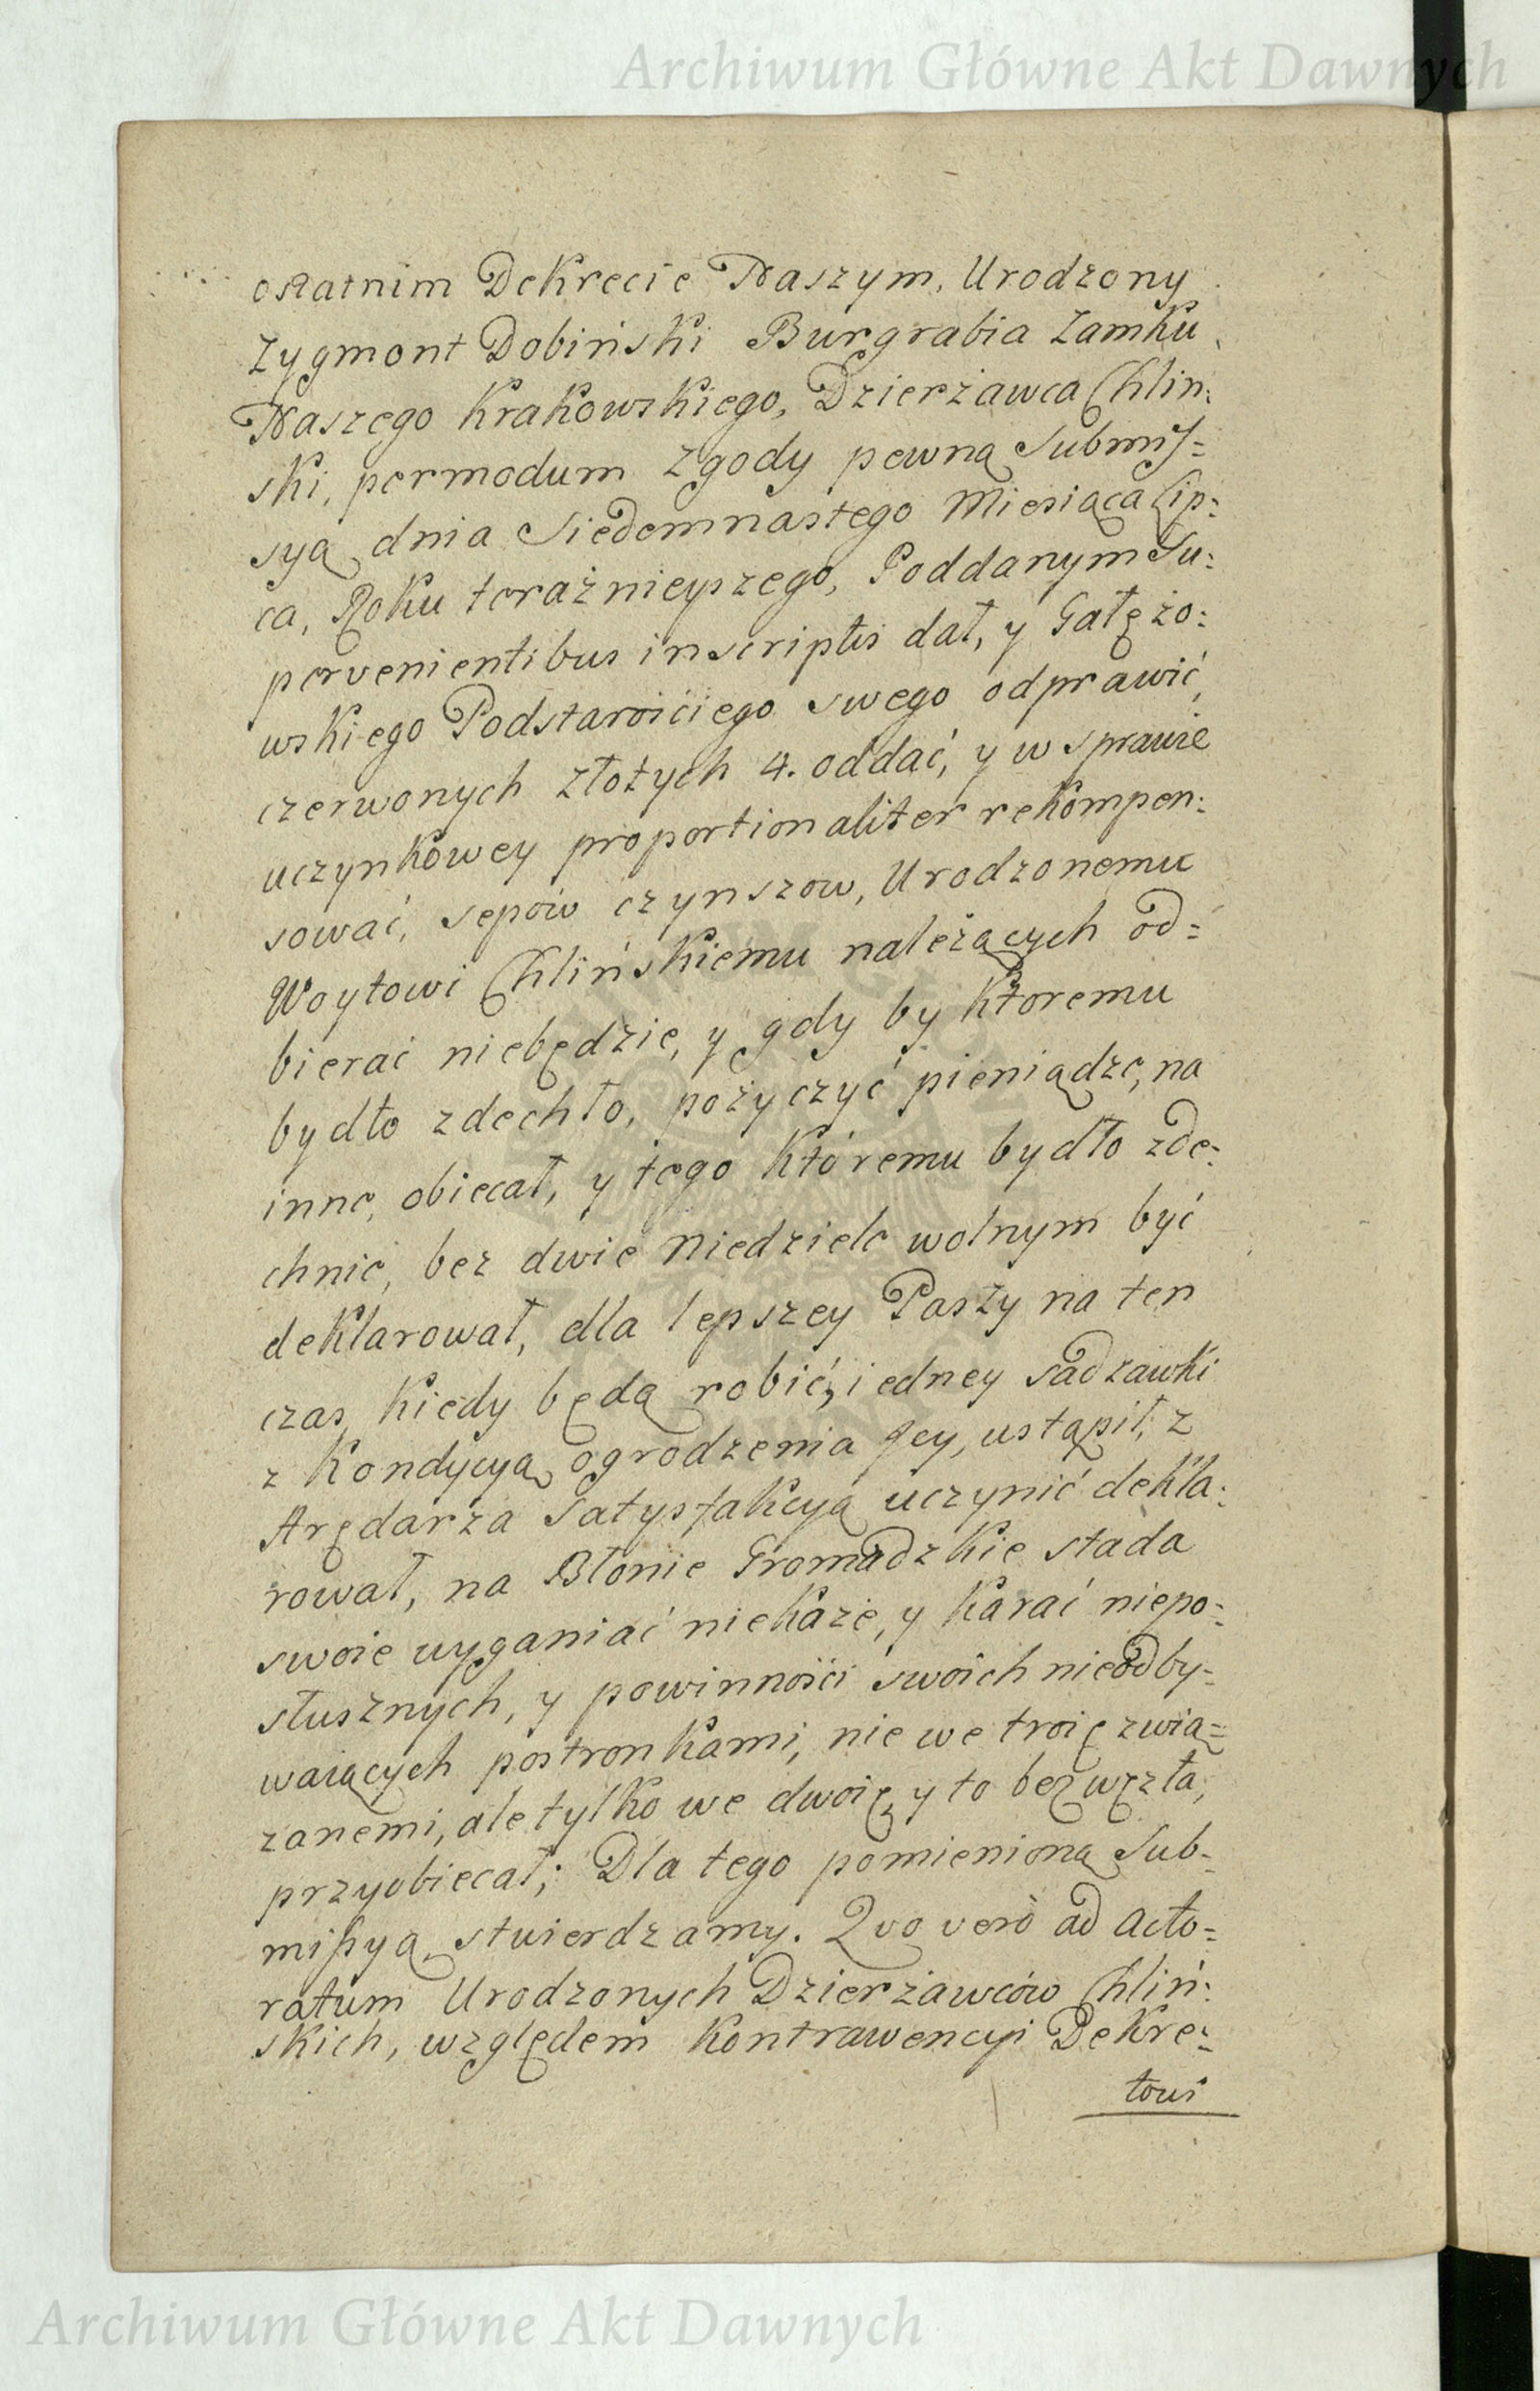 Archiwum Główne Akt Dawnych
ostatnim Dekrecie Naszym, Urodzony
Zygmont Dobiński Burgrabia Zamku
Naszego Krakowskiego, Dzierżawca Chlin:
ski, permodum zgody pewną Submis=
syą dnia Siedemnastego Miesiąca Lip=
ca, Roku teraźnieyszego, Poddanym Su:
pervenientibus inscriptis dał, y Gałęzo:
wskiego Podstarościego swego odprawić,
czerwonych złotych 4. oddać, y w sprawie
uczynkowey proportionaliter rekompen:
sować, sepów czynszow, Urodzonemu
Woytowi Chlińskiemu należących od=
bierać niebędzie, y gdy by ktoremu
bydło zdechło, pożyczyć pieniądze, na
inne, obiecał, y tego któremu bydło zde:
chnie, bez dwie Niedziele wolnym być
deklarował, dla lepszey Paszy na ten
czas kiedy będą robić, iedney sadzawki
z Kondycyą ogrodzenia Jey, ustąpił, z
Arędarza Satysfakcyą uczynić dekla:
rował, na Błonie Gromadzkie stada
swoie wyganiać niekaże, y karać niepo=
słusznych, y powinności swoich nieodby=
waiących postronkami, nie we troię zwią=
zanemi, ale tylko we dwoię, y to bez węzła,
przyobiecał; Dla tego pomienioną Sub=
missyą stwierdzamy. Quo verò ad Acto=
ratum Urodzonych Dzierżawców Chliń:
skich, względem Kontrawencyi Dekre=
towi
Archiwum Główne Akt Dawnych